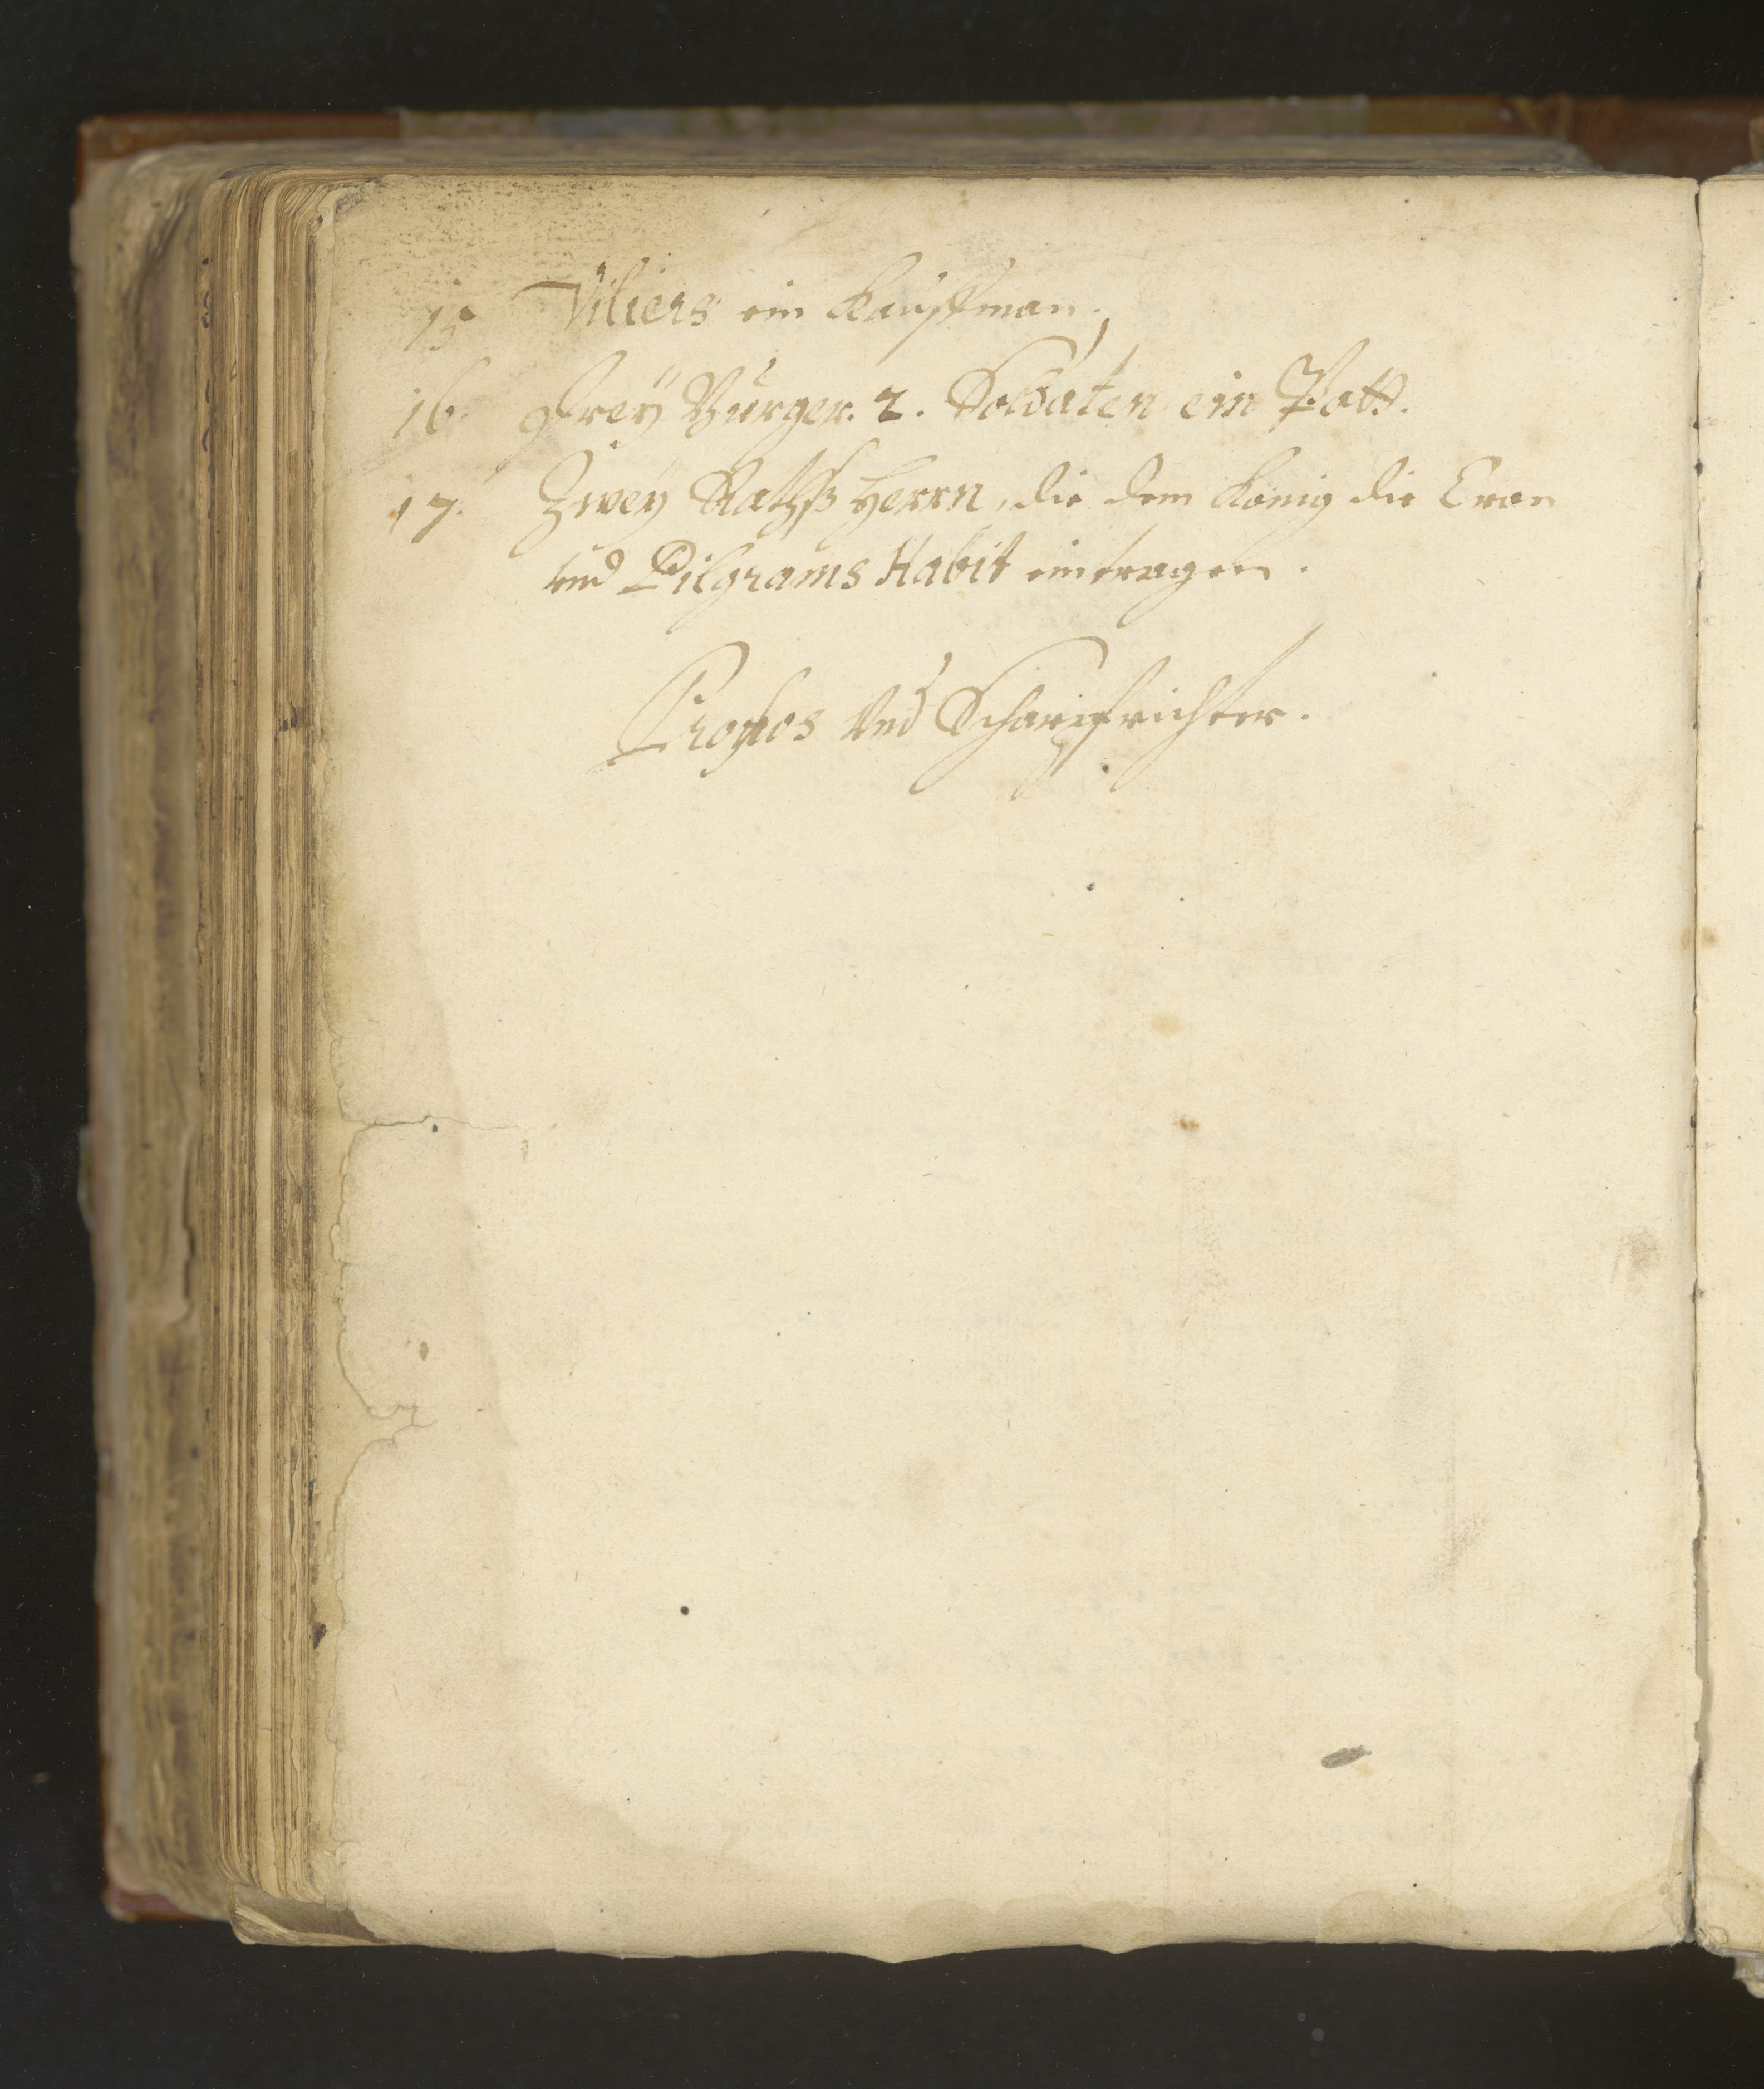 15 Viliers ein Kauffman.
16. Frey Burger. 2. Soldaten ein
17. Zwey Rathß Herrn, die dem König die Cron
vnd Pilgrams Habit eintragen.
Profos Vnd Scharpfrichter.